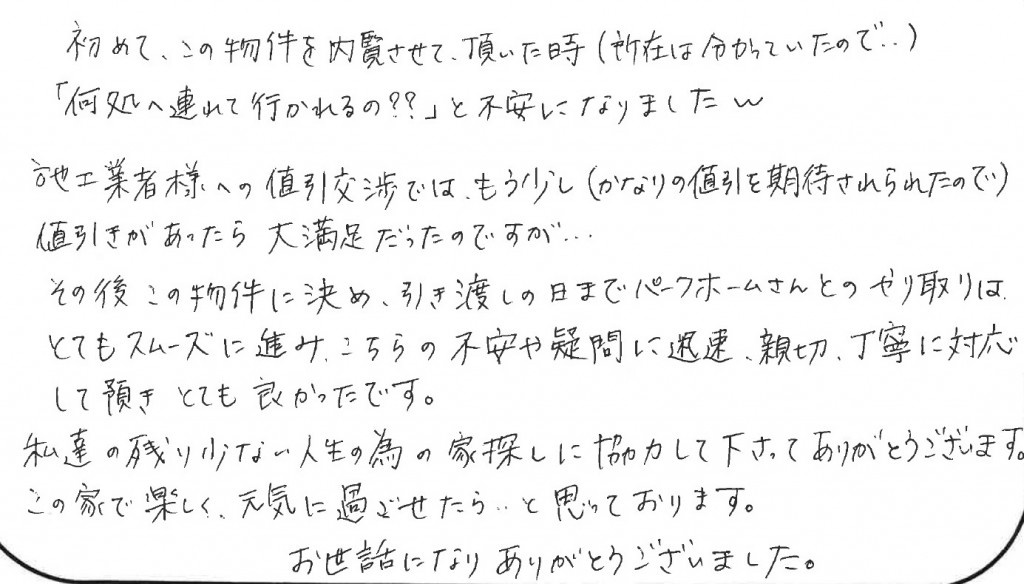 初めて、この物件を内覧させて、頂いた時(所在は分かっていたので..)
「何処へ連れて行かれるの??」と不安になりましたw
工業者様への値引交渉では、もう少し(かなりの値引を期待されられたので)
値引きがあったら 大満足だったのですが...
その後 この物件に決め、引き渡しの日までパークホームさんとのやり取りは、
とてもスムーズに進み、こちらの不安や疑問に迅速、親切、丁寧に対応
して頂き とても良かったです。
私達の残り少ない人生の為の家探しに協力して下さってありがとうございます。
この家で楽しく、元気に過ごせたら..と思っております。
お世話になりありがとうございました。